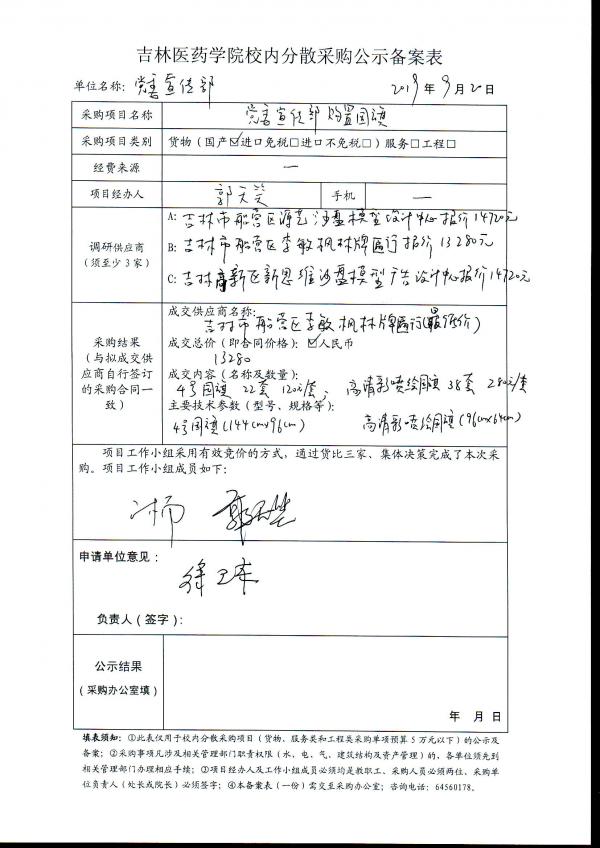 吉林医药学院校内分散采购公示备案表
单位名称：党委宣传部 2019年9月20日
采购项目名称 党委宣传部购置国旗
采购项目类别 货物（国产☑进口免税□进口不免税□）服务□工程□
经费来源 —
项目经办人 郭天笑 手机 —
调研供应商
（须至少3家）
A：吉林市船营区源艺沙盘模型设计中心报价14720元
B：吉林市船营区李敏枫林牌匾行报价13280元
C：吉林高新区新思维沙盘模型广告设计中心报价14720元
采购结果
（与拟成交供
应商自行签订
的采购合同一
致）
成交供应商名称：
吉林市船营区李敏枫林牌匾行(最低价)
成交总价（即合同价格）：☑人民币
13280
成交内容（名称及数量）：
4号国旗 22套 120元/套； 高清彩喷绘国旗 38套 280元/套
主要技术参数（型号、规格等）：
4号国旗(144cm×96cm) 高清彩喷绘国旗(96cm×64cm)
项目工作小组采用有效竞价的方式，通过货比三家、集体决策完成了本次采
购。项目工作小组成员如下：
申请单位意见：
负责人（签字）：
公示结果
（采购办公室填）
年 月 日
填表须知：①此表仅用于校内分散采购项目（货物、服务类和工程类采购单项预算5万元以下）的公示及
备案；②采购事项凡涉及相关管理部门职责权限（水、电、气、建筑结构及资产管理）的，各单位须先到
相关管理部门办理相应手续；③项目经办人及工作小组成员必须均是教职工、采购人员必须两位、采购单
位负责人（处长或院长）必须签字；④本备案表（一份）需交至采购办公室；咨询电话：64560178。